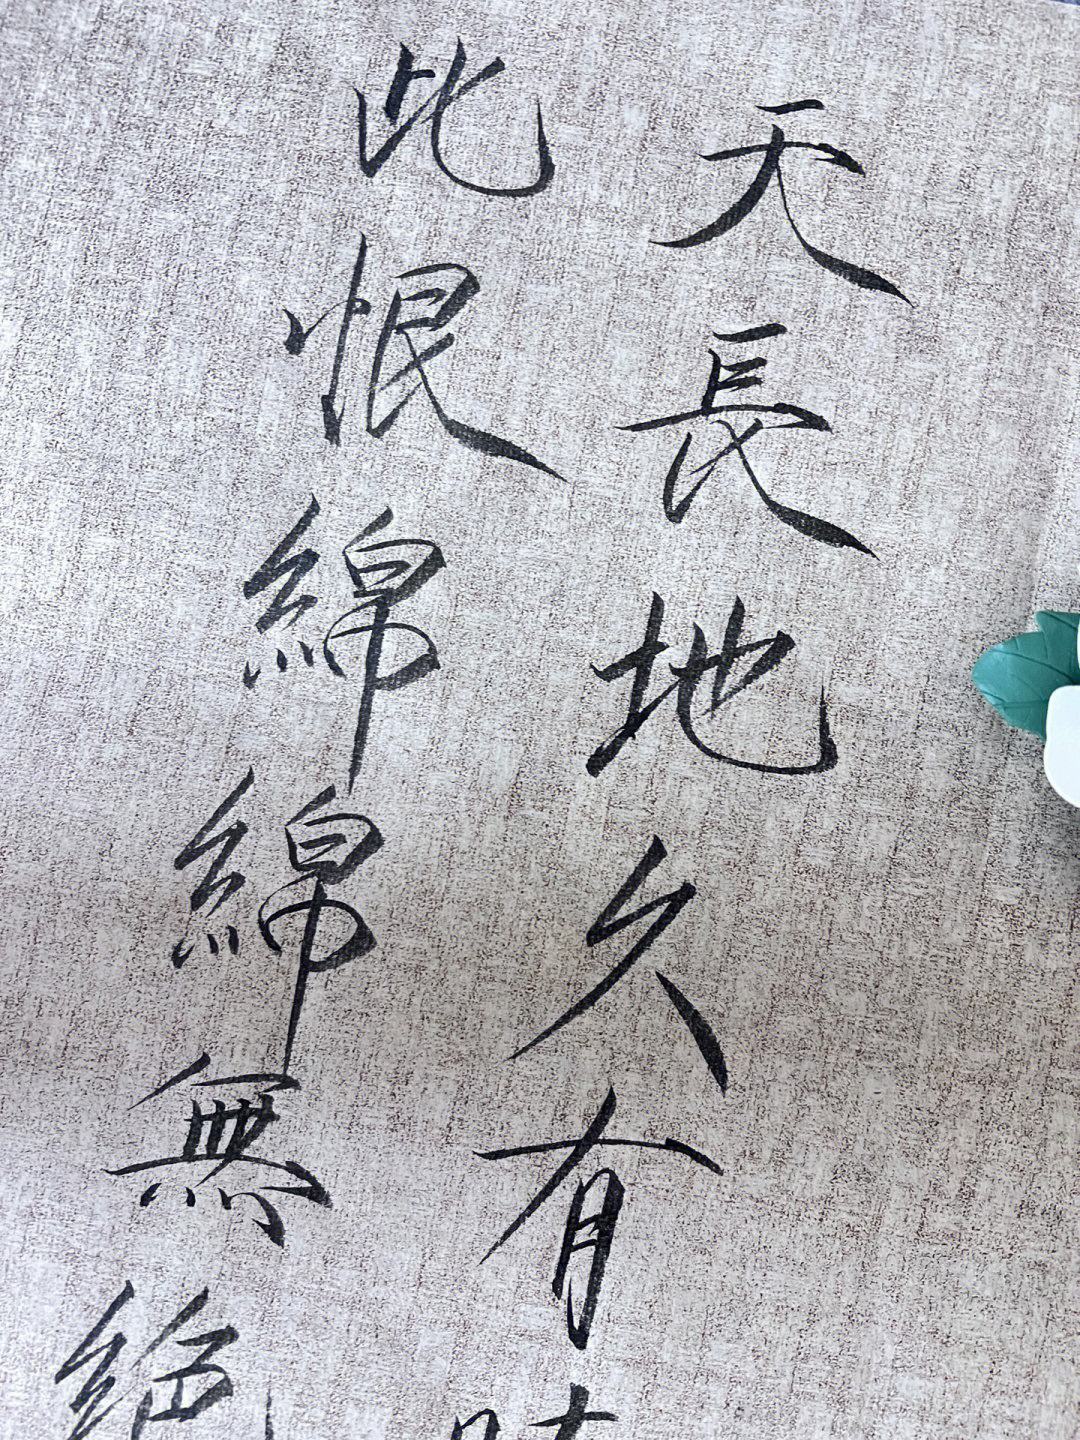 天長地久有時
此恨綿綿無絕